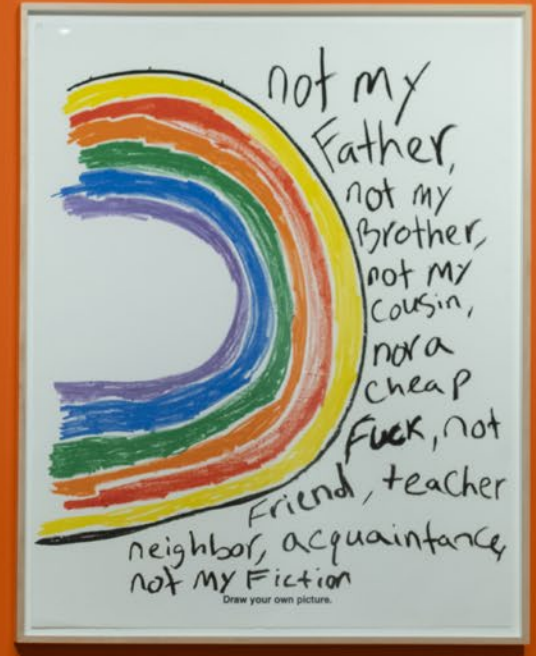 not my
Father,
not my
Brother,
not my
cousin,
nor a
cheap
Fuck, not
Friend, teacher
neighbor, acquaintance,
not my Fiction
Draw your own picture.